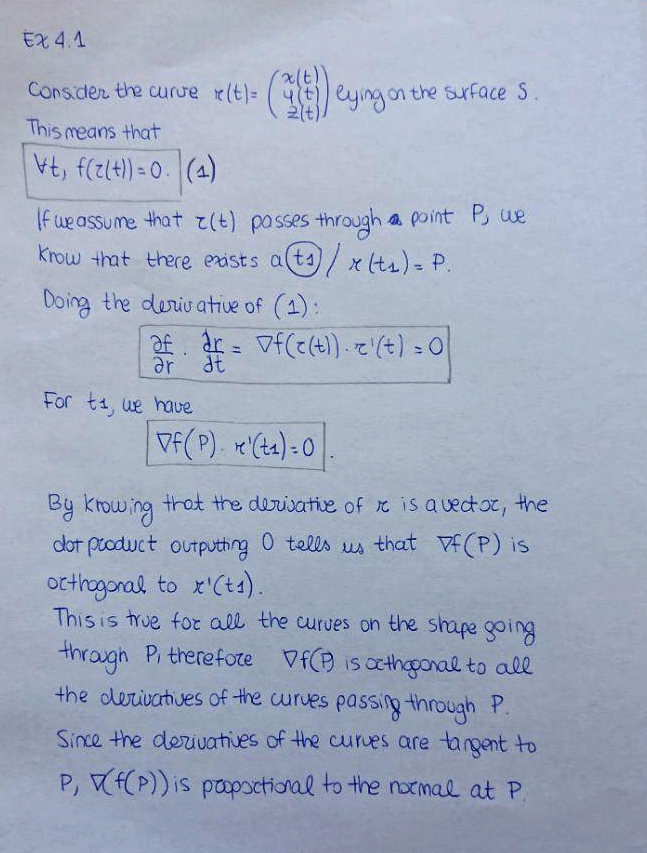 Ex 4.1
Consider the curve r(t) = (x(t) y(t) z(t)) lying on the surface S.
This means that
∀t, f(r(t)) = 0. (1)
If we assume that r(t) passes through a point P, we
know that there exists a t1 / r(t1) = P.
Doing the derivative of (1):
∂f/∂r · dr/dt = ∇f(r(t)) · r'(t) = 0
For t1, we have
∇f(P) · r'(t1) = 0.
By knowing that the derivative of r is a vector, the
dot product outputting 0 tells us that ∇f(P) is
orthogonal to r'(t1).
This is true for all the curves on the shape going
through P, therefore ∇f(P) is orthogonal to all
the derivatives of the curves passing through P.
Since the derivatives of the curves are tangent to
P, ∇(f(P)) is propoctional to the normal at P.